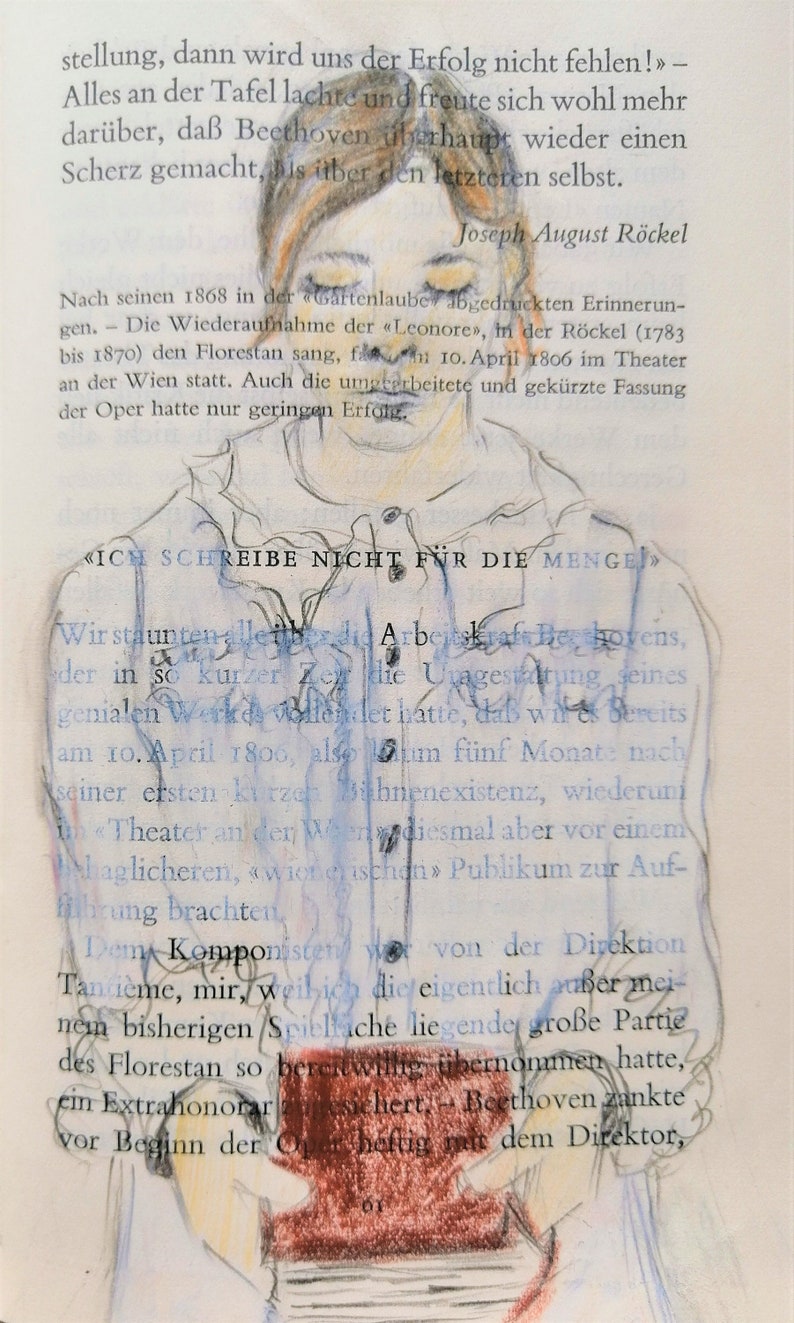 stellung, dann wird uns der Erfolg nicht fehlen!» –
Alles an der Tafel lachte und freute sich wohl mehr
darüber, daß Beethoven überhaupt wieder einen
Scherz gemacht, als über den letzteren selbst.
Joseph August Röckel
Nach seinen 1868 in der «Gartenlaube» abgedruckten Erinnerun-
gen. – Die Wiederaufnahme der «Leonore», in der Röckel (1783
bis 1870) den Florestan sang, fand am 10. April 1806 im Theater
an der Wien statt. Auch die umgearbeitete und gekürzte Fassung
der Oper hatte nur geringen Erfolg.
«ICH SCHREIBE NICHT FÜR DIE MENGE!»
Wir staunten alle über die Arbeitskraft Beethovens,
der in so kurzer Zeit die Umgestaltung seines
genialen Werkes vollendet hatte, daß wir es bereits
am 10. April 1806, also kaum fünf Monate nach
seiner ersten kurzen Bühnenexistenz, wiederum
im «Theater an der Wien», diesmal aber vor einem
behaglicheren, «wienerischen» Publikum zur Auf-
führung brachten.
Dem Komponisten war von der Direktion
Tantième, mir, weil ich die eigentlich außer mei-
nem bisherigen Spielfache liegende große Partie
des Florestan so bereitwillig übernommen hatte,
ein Extrahonorar zugesichert. – Beethoven zankte
vor Beginn der Oper heftig mit dem Direktor,
61